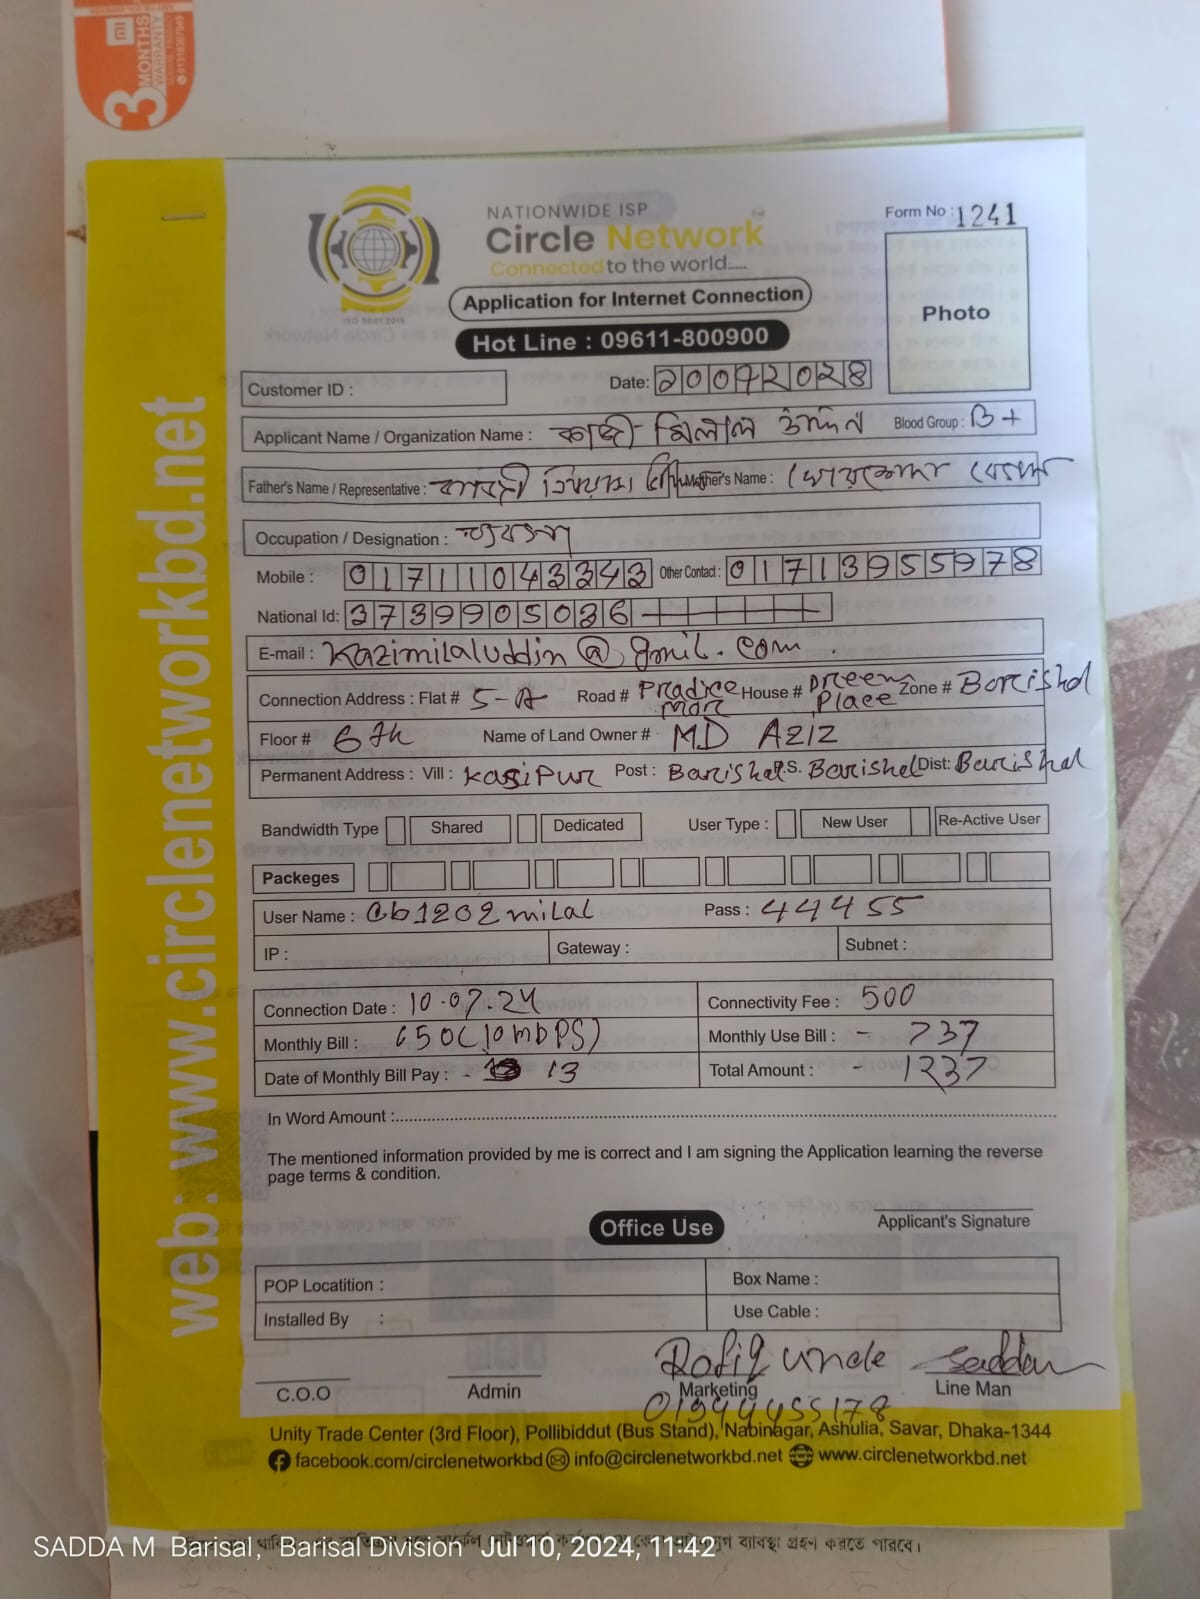 3 MONTHS WARRANTY
mi
NATIONWIDE ISP
Circle Network
Connected to the world.....
ISO 9001:2015
Form No : 1241
Photo
Application for Internet Connection
Hot Line : 09611-800900
Customer ID :
Date:
Applicant Name / Organization Name : কাজী মিলাল উদ্দিন Blood Group : B+
Father's Name / Representative : Mother's Name :
Occupation / Designation :
Mobile : 01711043343 Other Contact : 01713955978
National Id: 3739905036
E-mail : kazimilaluddin@gmil.com
Connection Address : Flat # 5-A Road # House # Place Zone # Barishal
Floor # 6th Name of Land Owner # MD AZIZ
Permanent Address : Vill : Kasipur Post : Barishal P.S. Barishal Dist: Barishal
Bandwidth Type Shared Dedicated User Type : New User Re-Active User
Packeges
User Name : cb1202milal Pass : 44455
IP : Gateway : Subnet :
Connection Date : 10.07.24 Connectivity Fee : 500
Monthly Bill : 650(10mbps) Monthly Use Bill : - 737
Date of Monthly Bill Pay : - 13 Total Amount : - 1237
In Word Amount :
The mentioned information provided by me is correct and I am signing the Application learning the reverse
page terms & condition.
Applicant's Signature
Office Use
POP Locatition : Box Name :
Installed By : Use Cable :
Rafiq uncle Saddam
C.O.O Admin Marketing Line Man
01944455178
Unity Trade Center (3rd Floor), Pollibiddut (Bus Stand), Nabinagar, Ashulia, Savar, Dhaka-1344
facebook.com/circlenetworkbd info@circlenetworkbd.net www.circlenetworkbd.net
web: www.circlenetworkbd.net
SADDA M Barisal, Barisal Division Jul 10, 2024, 11:42
ব্যাবস্থা গ্রহণ করতে পারবে।